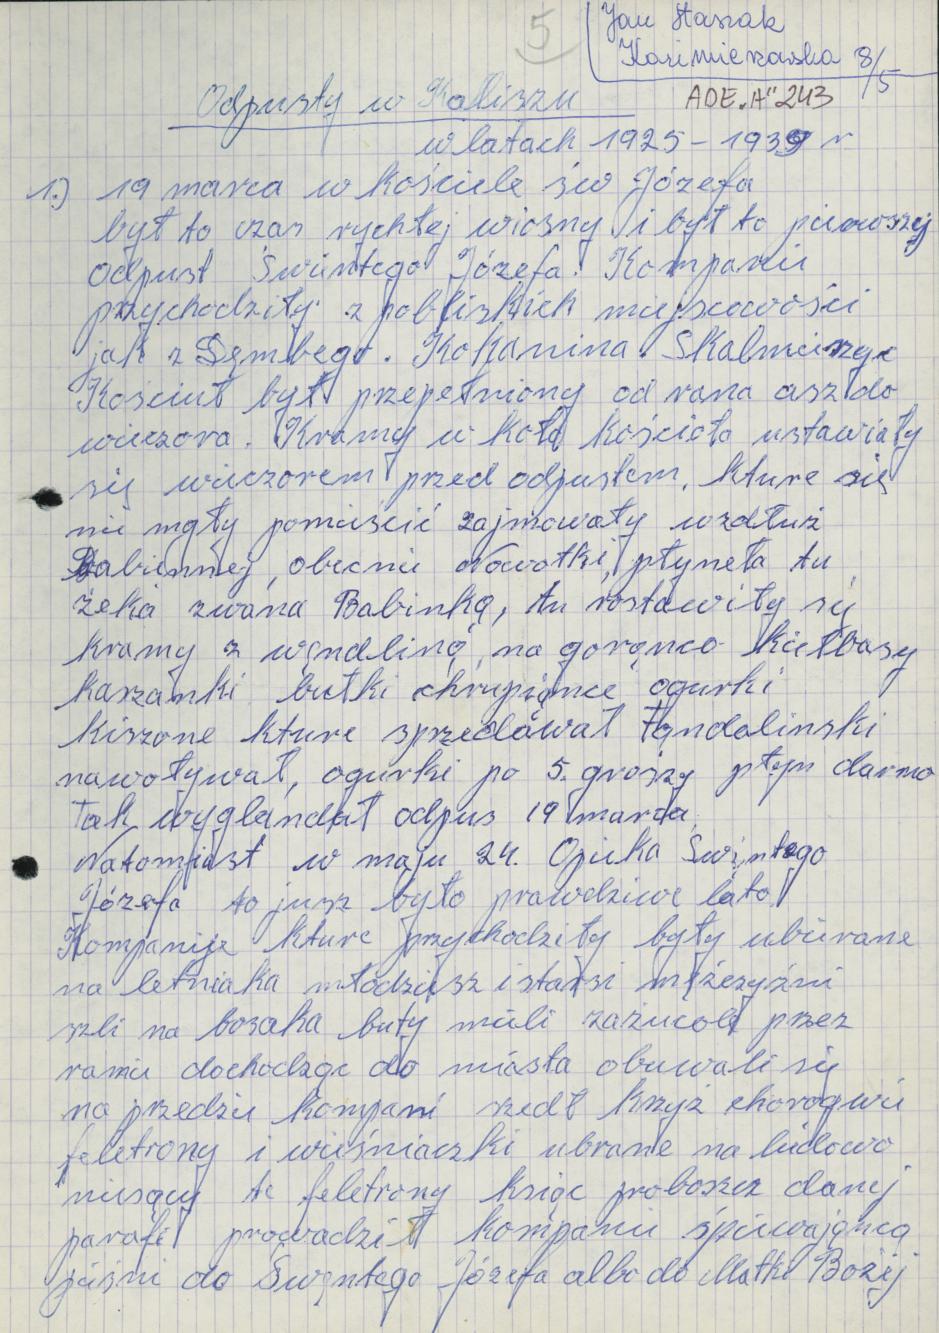 5
Jan Stasiak
Kazimierzowska 8/5
ADE "A" 243
Odpusty w Kaliszu
w latach 1925 - 1939 r
1.) 19 marca w kościele św Józefa
był to czas rychłej wiosny i był to pierwszy
odpust Świntego Józefa. Kompanie
przychodziły z pobliskich miejscowości
jak z Dembego. Kokanina. Skalmierzyc
Kościuł był przepełniony od rana asz do
wieczora. Kramy w koło kościoła ustawiały
się wieczorem przed odpustem, kture się
nie mgły pomieścić zajmowały wzdłuż
Babinnej, obecnie Nowotki, płyneła tu
żeka zwana Babinką, tu rostawiły się
kramy z wendliną, na gorąnco kiełbasy
kaszanki bułki chrupiące ogurki
kiszone kture sprzedawał Fandalinski
nawoływał, ogurki po 5. groszy płyn darmo
Tak wyglandał odpus 19 marca
Natomiast w maju 24. Opieka Świntego
Józefa to jusz było prawdziwe lato
Kompanije kture przychodziły były ubierane
na letniaka młodziesz i starsi mężczyźni
szli na bosaka buty mieli zażucone przez
ramie dochodząc do miasta obuwali się
na przedzie kompani szedł krzyż chorągwie
feletrony i wieśniaczki ubrane na ludowo
niesący te feletrony ksiąc proboszcz danej
parafi prowadził kompanie śpiewającą
pieśni do Świętego Józefa albo do Matki Bożej